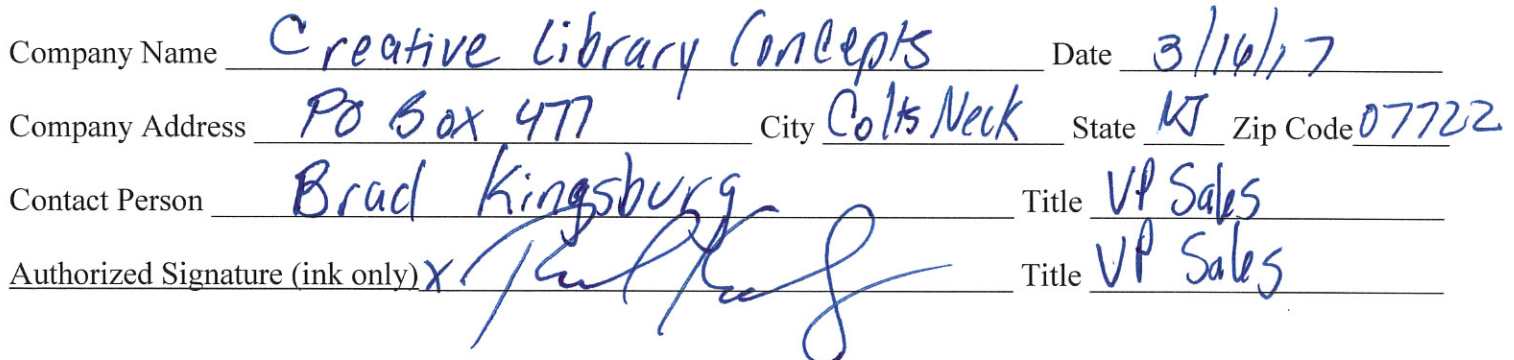 Company Name Creative Library Concepts Date 3/16/17
Company Address PO Box 477 City Colts Neck State NJ Zip Code 07722
Contact Person Brad Kingsbury Title VP Sales
Authorized Signature (ink only) X Title VP Sales